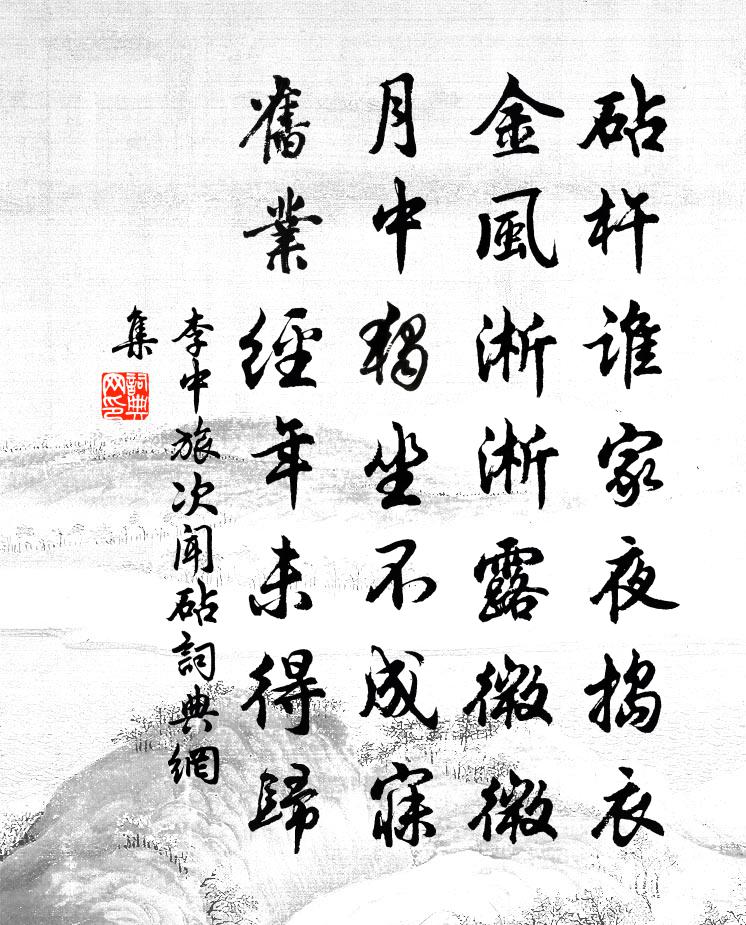 砧杵誰家夜搗衣
金風淅淅露微微
月中獨坐不成寐
舊業經年未得歸
李中旅次聞砧詞典網
集
詞典
网印